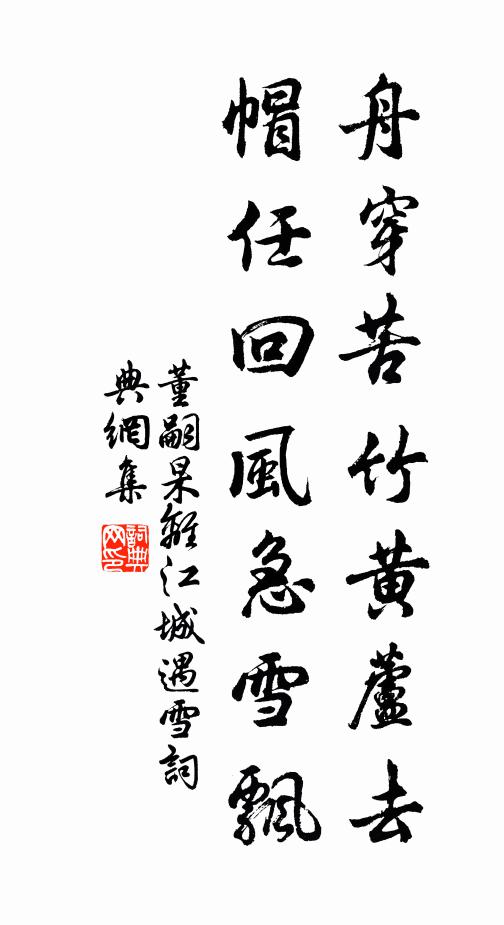 舟穿苦竹黃蘆去
帽任回風急雪飄
董嗣杲離江城遇雪詞
典網集
詞典網印